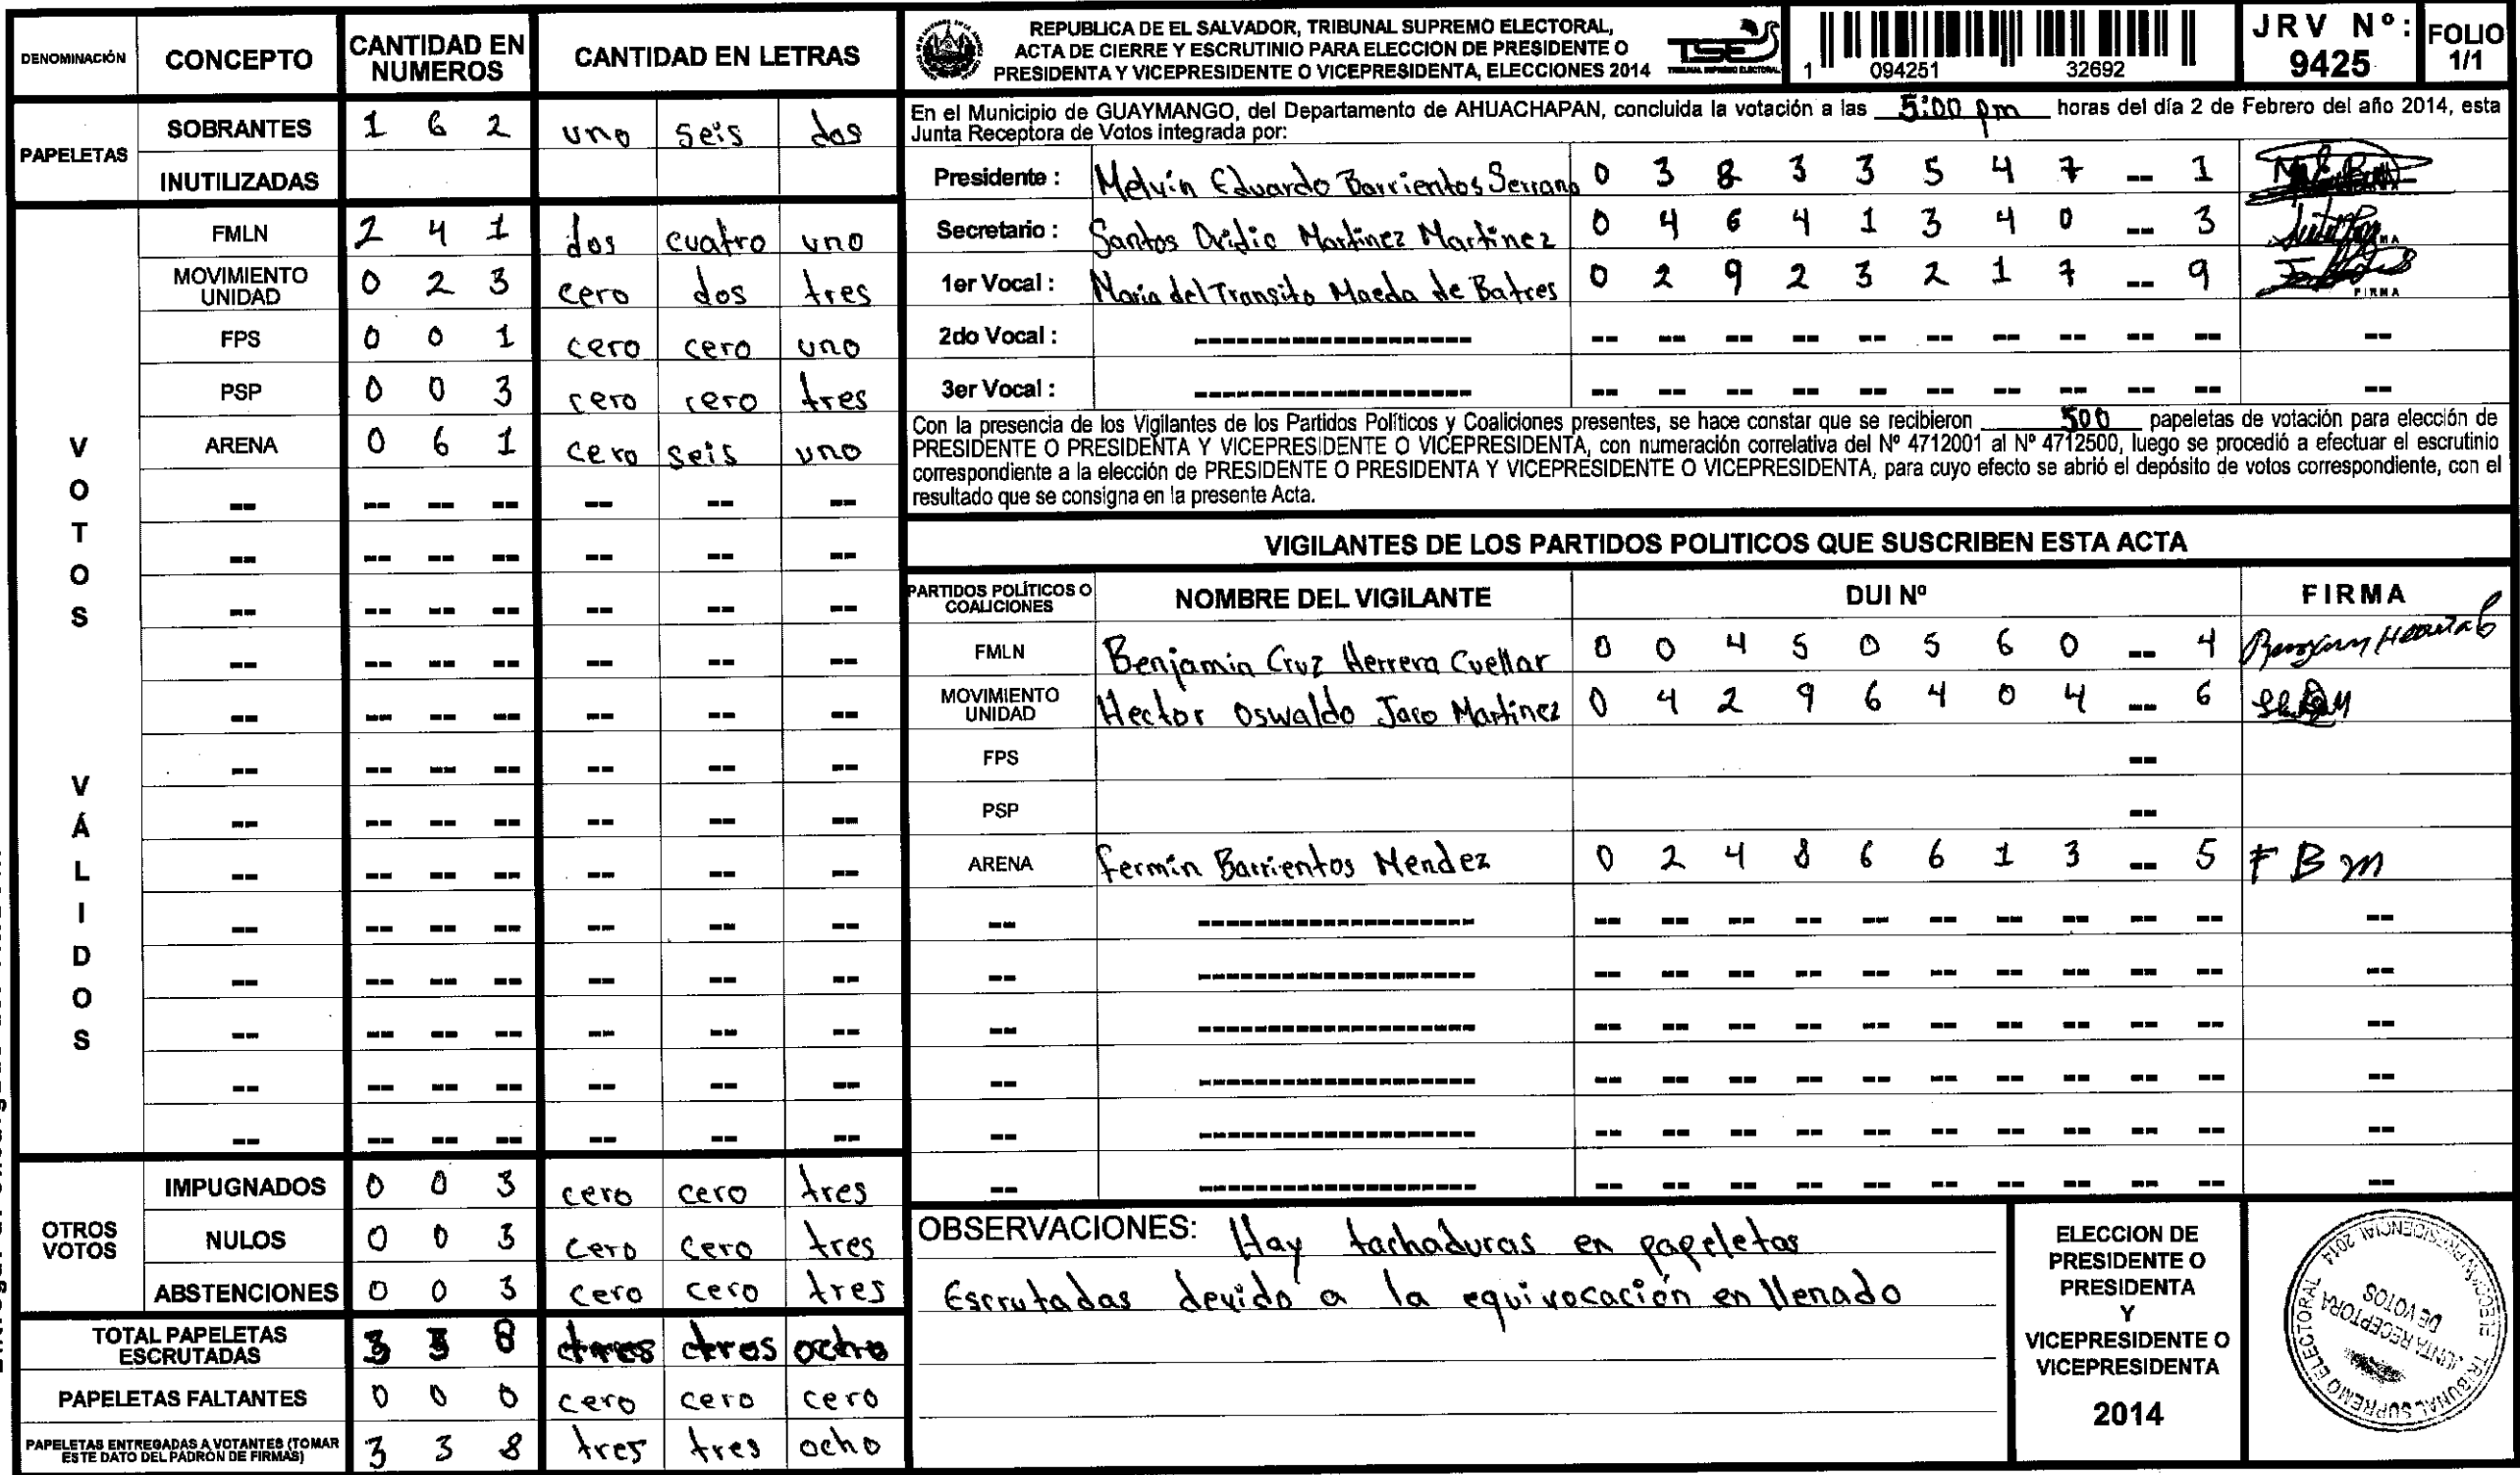 DENOMINACIÓN CONCEPTO CANTIDAD EN NUMEROS CANTIDAD EN LETRAS
PAPELETAS
SOBRANTES 1 6 2 uno seis dos
INUTILIZADAS
VOTOS VÁLIDOS
FMLN 2 4 1 dos cuatro uno
MOVIMIENTO UNIDAD 0 2 3 cero dos tres
FPS 0 0 1 cero cero uno
PSP 0 0 3 cero cero tres
ARENA 0 6 1 cero seis uno
-- -- -- -- -- -- --
-- -- -- -- -- -- --
-- -- -- -- -- -- --
-- -- -- -- -- -- --
-- -- -- -- -- -- --
-- -- -- -- -- -- --
-- -- -- -- -- -- --
-- -- -- -- -- -- --
-- -- -- -- -- -- --
-- -- -- -- -- -- --
-- -- -- -- -- -- --
-- -- -- -- -- -- --
-- -- -- -- -- -- --
OTROS VOTOS
IMPUGNADOS 0 0 3 cero cero tres
NULOS 0 0 3 cero cero tres
ABSTENCIONES 0 0 3 cero cero tres
TOTAL PAPELETAS ESCRUTADAS 3 3 8 tres tres ocho
PAPELETAS FALTANTES 0 0 0 cero cero cero
PAPELETAS ENTREGADAS A VOTANTES (TOMAR ESTE DATO DEL PADRON DE FIRMAS) 3 3 8 tres tres ocho
REPUBLICA DE EL SALVADOR, TRIBUNAL SUPREMO ELECTORAL,
ACTA DE CIERRE Y ESCRUTINIO PARA ELECCION DE PRESIDENTE O
PRESIDENTA Y VICEPRESIDENTE O VICEPRESIDENTA, ELECCIONES 2014
TSE
TRIBUNAL SUPREMO ELECTORAL
1 094251 32692
JRV Nº: 9425
FOLIO 1/1
En el Municipio de GUAYMANGO, del Departamento de AHUACHAPAN, concluida la votación a las 5:00 pm horas del día 2 de Febrero del año 2014, esta
Junta Receptora de Votos integrada por:
Presidente : Melvin Eduardo Barrientos Serrano 0 3 8 3 3 5 4 7 -- 1
Secretario : Santos Ovidio Martinez Martinez 0 4 6 4 1 3 4 0 -- 3
1er Vocal : Maria del Transito Maeda de Batres 0 2 9 2 3 2 1 7 -- 9
FIRMA
2do Vocal : ------------------- -- -- -- -- -- -- -- -- -- -- --
3er Vocal : ------------------- -- -- -- -- -- -- -- -- -- -- --
Con la presencia de los Vigilantes de los Partidos Políticos y Coaliciones presentes, se hace constar que se recibieron 500 papeletas de votación para elección de
PRESIDENTE O PRESIDENTA Y VICEPRESIDENTE O VICEPRESIDENTA, con numeración correlativa del Nº 4712001 al Nº 4712500, luego se procedió a efectuar el escrutinio
correspondiente a la elección de PRESIDENTE O PRESIDENTA Y VICEPRESIDENTE O VICEPRESIDENTA, para cuyo efecto se abrió el depósito de votos correspondiente, con el
resultado que se consigna en la presente Acta.
VIGILANTES DE LOS PARTIDOS POLITICOS QUE SUSCRIBEN ESTA ACTA
PARTIDOS POLÍTICOS O COALICIONES NOMBRE DEL VIGILANTE DUI Nº FIRMA
FMLN Benjamin Cruz Herrera Cuellar 0 0 4 5 0 5 6 0 -- 4
MOVIMIENTO UNIDAD Hector Oswaldo Jaco Martinez 0 4 2 9 6 4 0 4 -- 6
FPS --
PSP --
ARENA Fermin Barrientos Mendez 0 2 4 8 6 6 1 3 -- 5 F B m
-- ------------------- -- -- -- -- -- -- -- -- -- -- --
-- ------------------- -- -- -- -- -- -- -- -- -- -- --
-- ------------------- -- -- -- -- -- -- -- -- -- -- --
-- ------------------- -- -- -- -- -- -- -- -- -- -- --
-- ------------------- -- -- -- -- -- -- -- -- -- -- --
-- ------------------- -- -- -- -- -- -- -- -- -- -- --
OBSERVACIONES: Hay tachaduras en papeletas
Escrutadas devido a la equivocación en llenado
ELECCION DE
PRESIDENTE O
PRESIDENTA
Y
VICEPRESIDENTE O
VICEPRESIDENTA
2014
TRIBUNAL SUPREMO ELECTORAL
ELECCION PRESIDENCIAL 2014
JUNTA RECEPTORA
DE VOTOS